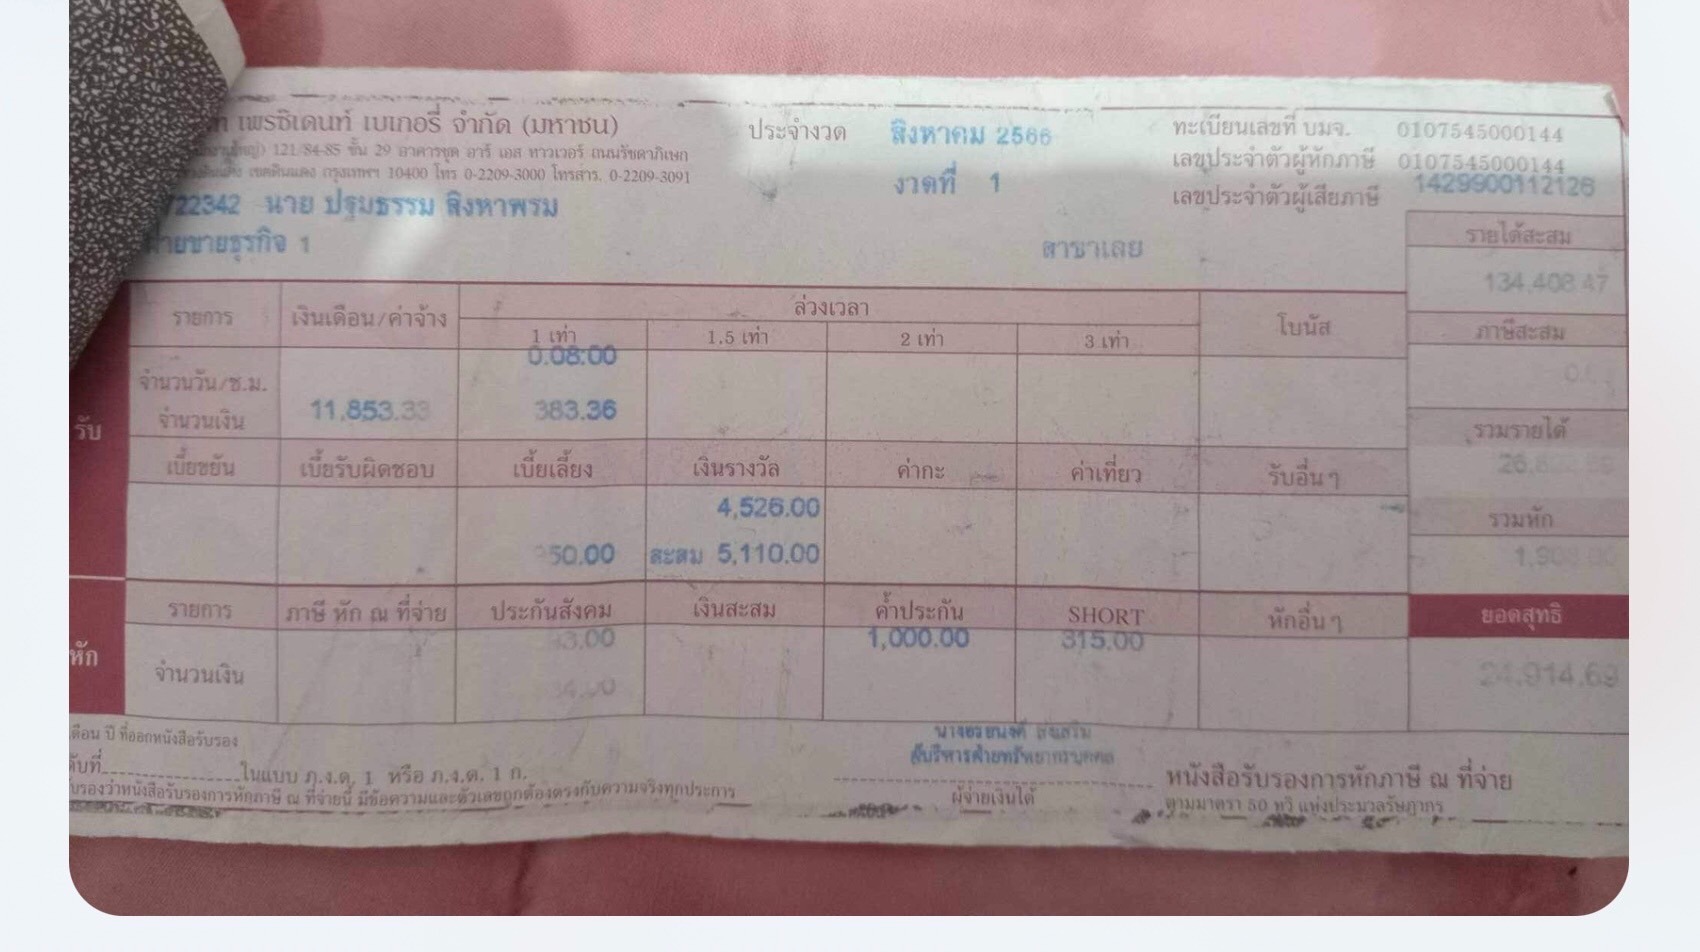 เพรซิเดนท์ เบเกอรี่ จำกัด (มหาชน)
121/84-85 ชั้น 29 อาคารชุด อาร์ เอส ทาวเวอร์ ถนนรัชดาภิเษก
เขตดินแดง กรุงเทพฯ 10400 โทร 0-2209-3000 โทรสาร. 0-2209-3091
ประจำงวด สิงหาคม 2566
งวดที่ 1
ทะเบียนเลขที่ บมจ. 0107545000144
เลขประจำตัวผู้หักภาษี 0107545000144
เลขประจำตัวผู้เสียภาษี 1429900112126
722342 นาย ปฐมธรรม สิงหาพรม
ฝ่ายขายธุรกิจ 1 สาขาเลย
รายได้สะสม
134,408.47
รายการ เงินเดือน/ค่าจ้าง ล่วงเวลา โบนัส
1 เท่า 1.5 เท่า 2 เท่า 3 เท่า
ภาษีสะสม
จำนวนวัน/ช.ม. 0:08:00
จำนวนเงิน 11,853.33 383.36
รับ
รวมรายได้
เบี้ยขยัน เบี้ยรับผิดชอบ เบี้ยเลี้ยง เงินรางวัล ค่ากะ ค่าเที่ยว รับอื่นๆ
4,526.00
รวมหัก
50.00 สะสม 5,110.00
รายการ ภาษี หัก ณ ที่จ่าย ประกันสังคม เงินสะสม ค้ำประกัน SHORT หักอื่นๆ ยอดสุทธิ
หัก
1,000.00 315.00
จำนวนเงิน 24,914.69
เดือน ปี ที่ออกหนังสือรับรอง
ในแบบ ภ.ง.ด. 1 หรือ ภ.ง.ด. 1 ก.
รับรองว่าหนังสือรับรองการหักภาษี ณ ที่จ่ายนี้ มีข้อความและตัวเลขถูกต้องตรงกับความจริงทุกประการ
ผู้บริหารฝ่ายทรัพยากรบุคคล
ผู้จ่ายเงินได้
หนังสือรับรองการหักภาษี ณ ที่จ่าย
ตามมาตรา 50 ทวิ แห่งประมวลรัษฎากร